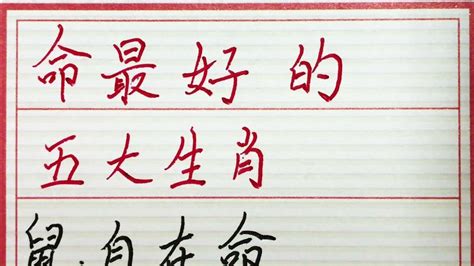 命最好的
五大生肖
鼠:自在命